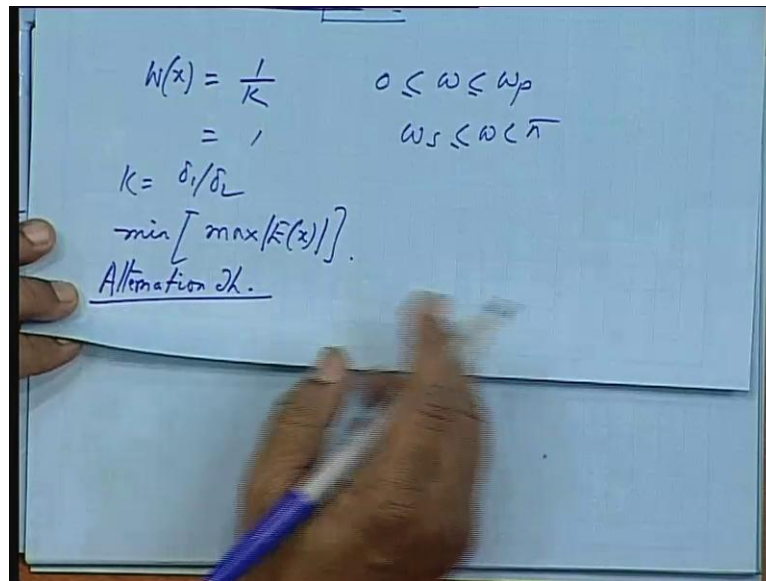 W(x) = 1/K    0 ≤ ω ≤ ωp
= 1    ωs ≤ ω < π
K = δ1/δ2
min [ max |E(x)| ].
Alternation Th.